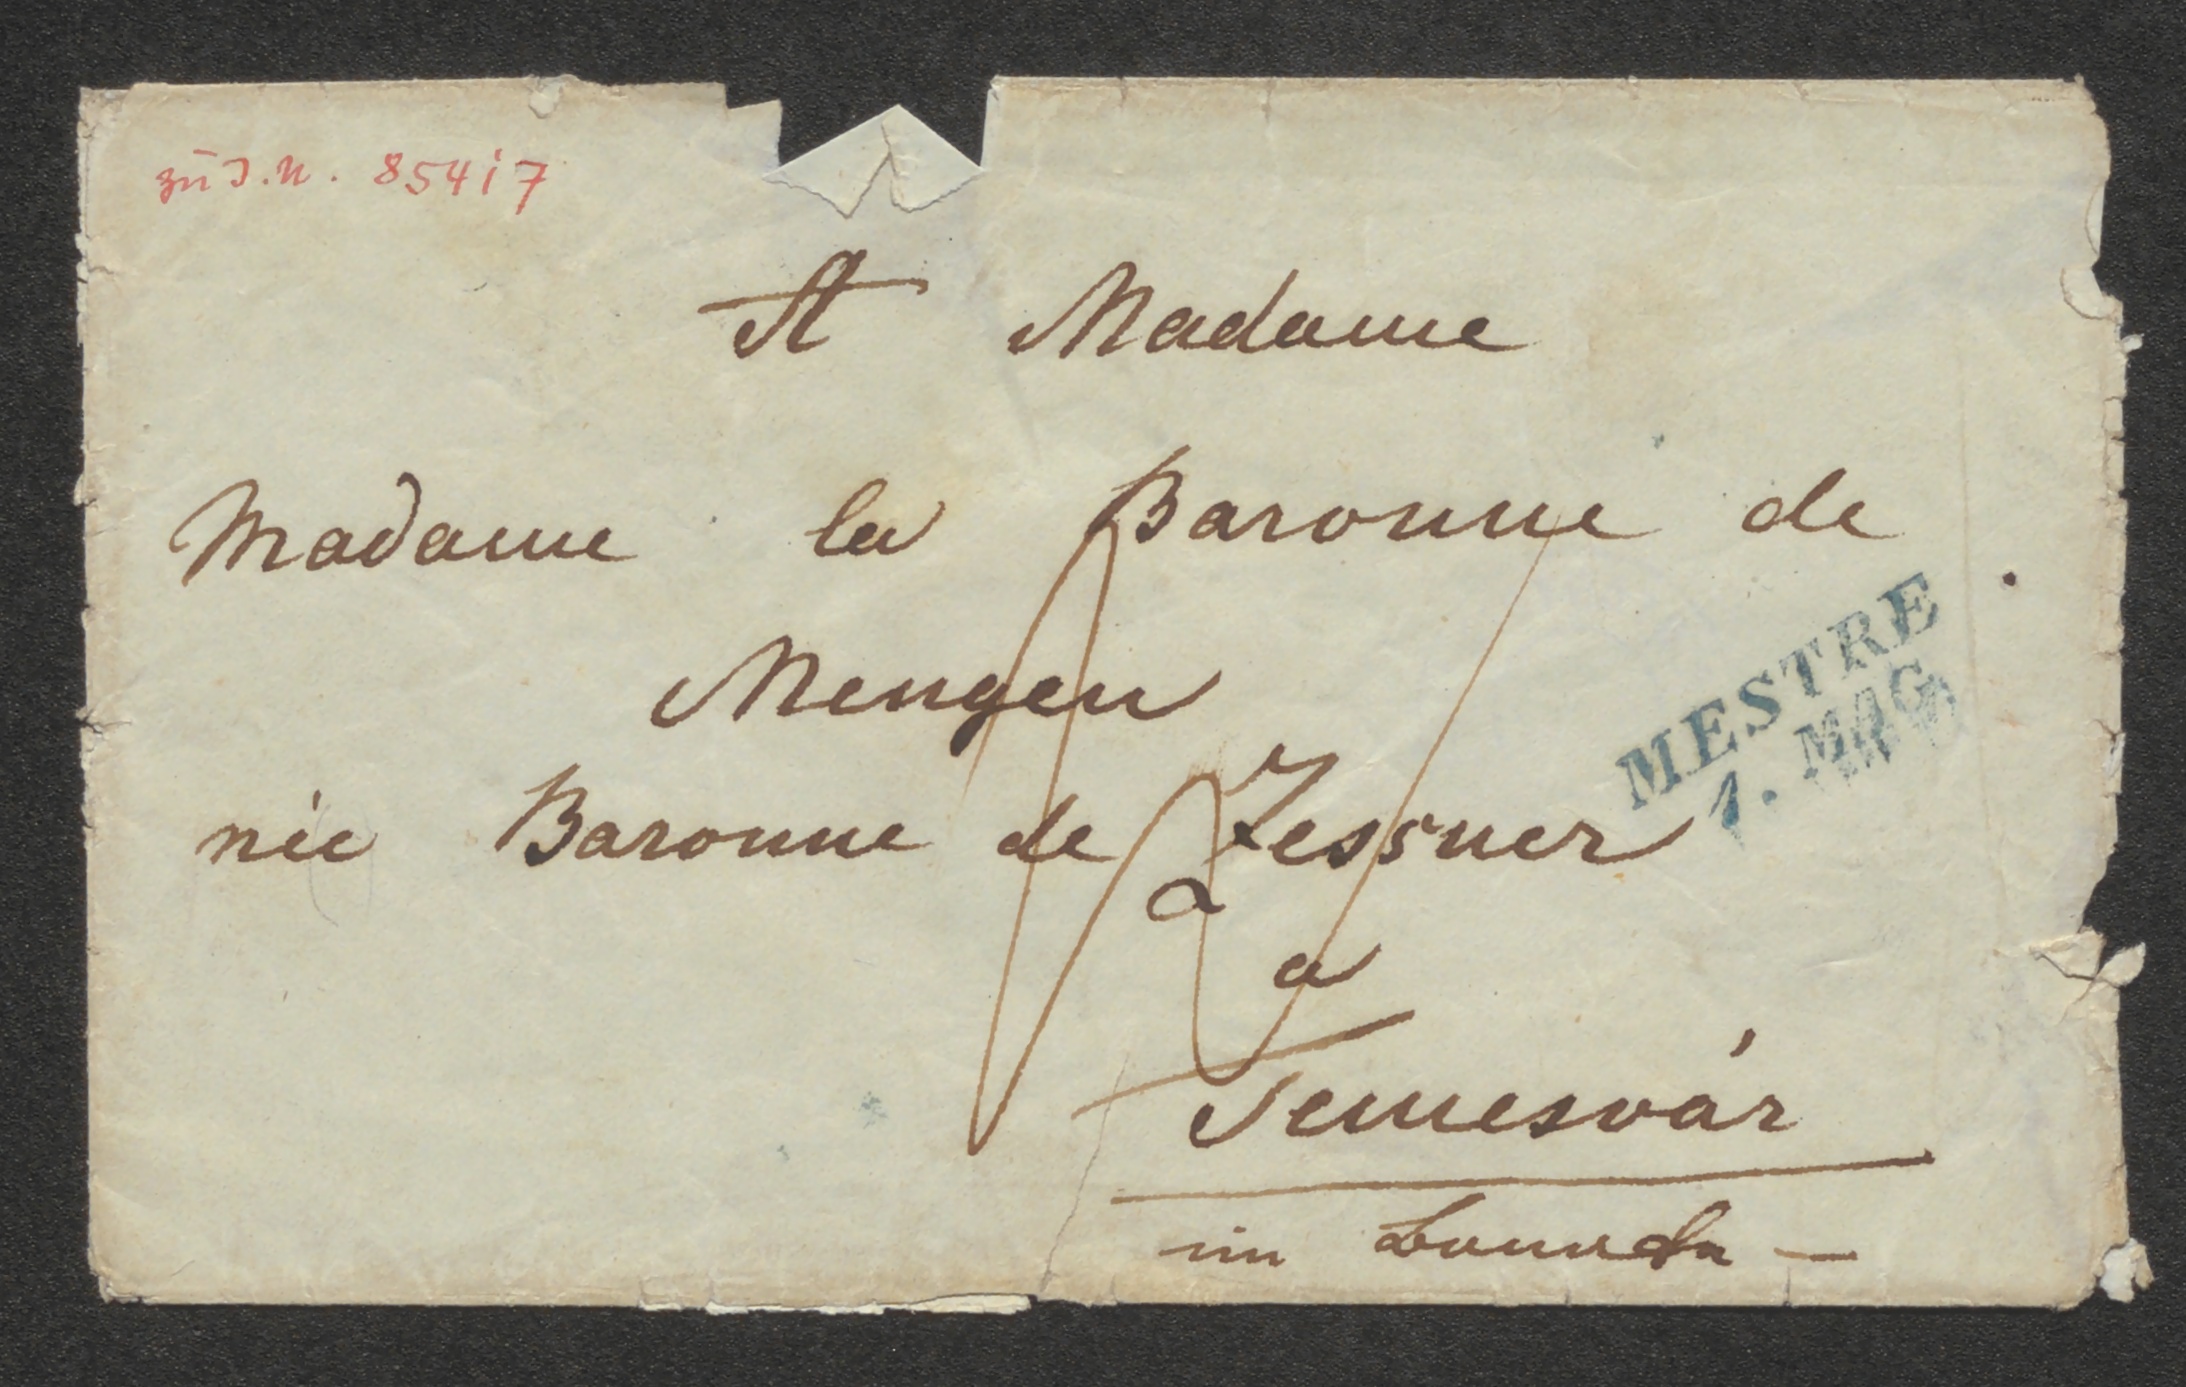 zu I.N. 85417
A Madame
Madame la Baronne de
Mengen
née Baronne de Zessner
a
Temesvár
im Banate
MESTRE
1. MAG